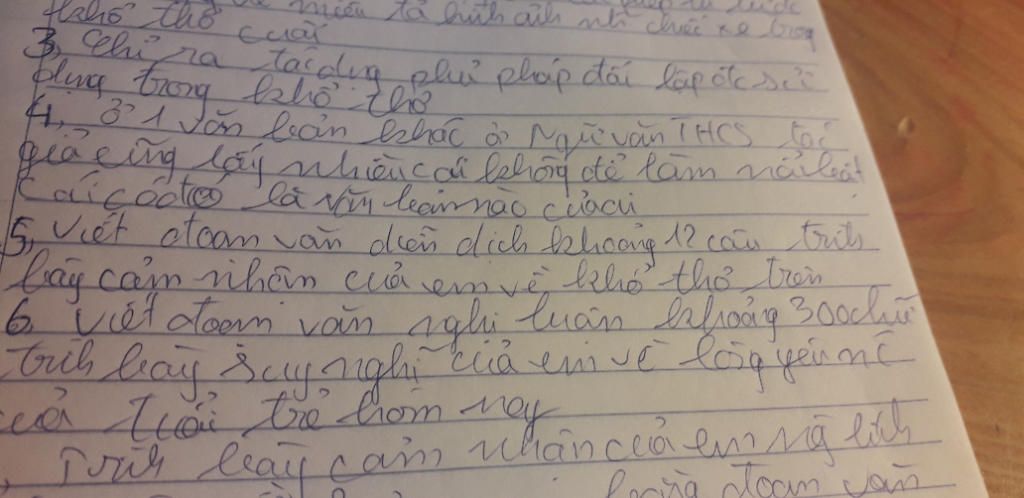 miêu tả hình ảnh chiếc xe trong
khổ thơ cuối
3, Chỉ ra tác dụng phủ pháp đối lập đc sử
dụng trong khổ thơ
4, Ở 1 văn bản khác ở Ngữ văn THCS tác
giả cũng lấy nhiều cái không để làm nổi bật
cái có là văn bản nào của
5, Viết đoan văn diễn dịch khoảng 12 câu trình
bày cảm nhận của em về khổ thơ trên
6, Viết đoan văn nghị luận khoảng 300 chữ
trình bày suy nghĩ của em về lòng yêu nc
của tuổi trẻ hôm nay
Trình bày cảm nhận của em
đoạn văn